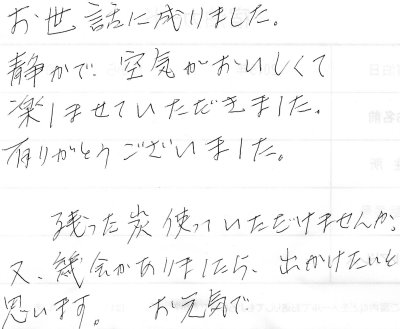 お世話に成りました。
静かで、空気がおいしくて
楽しませていただきました。
有りがとうございました。
残った炭使っていただけませんか。
又、幾会がありましたら、出かけたいと
思います。 お元気で